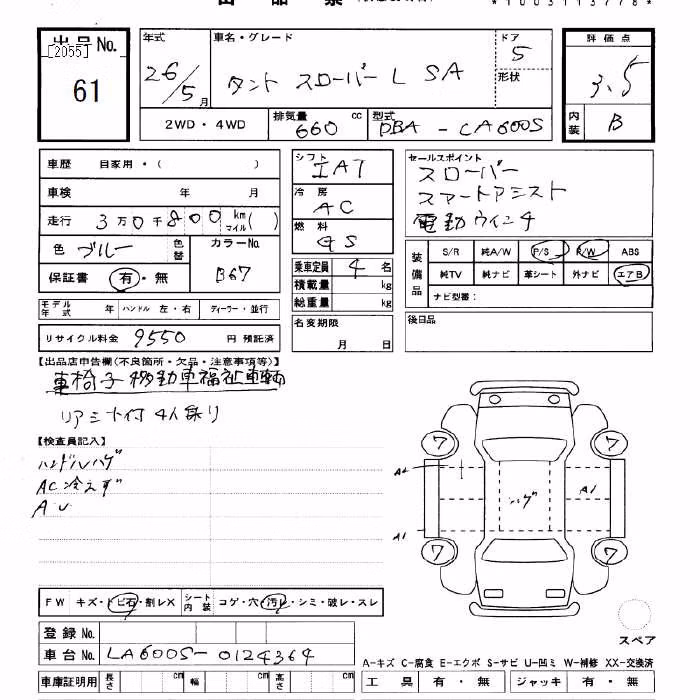 出品票
*1003113778*
出品No.
[2055]
61
年式
26/5月
車名・グレード
タント スローパーL SA
ドア
5
形状
評価点
3.5
2WD・4WD
排気量
660 cc
型式
DBA-CA600S
内装
B
車歴 自家用・( )
車検 年 月
走行 3万0千800 km マイル( )
色 ブルー
色替
カラーNo.
B67
保証書 有・無
モデル年式 年 ハンドル 左・右 ディーラー・並行
リサイクル料金 9550 円 預託済
シフト
IAT
冷房
AC
燃料
GS
乗車定員 4 名
積載量 kg
総重量 kg
名変期限
月 日
セールスポイント
スローパー
スマートアシスト
電動ウインチ
装備品
S/R 純A/W P/S P/W ABS
純TV 純ナビ 革シート 外ナビ エアB
ナビ型番:
後日品
【出品店申告欄(不良箇所・欠品・注意事項等)】
車椅子移動車福祉車輌
リアシート付 4人乗り
【検査員記入】
ハンドルハゲ
AC冷えず
A.U
ワ
ワ
A2
ハゲ
A1
A1
ワ
ワ
スペア
FW キズ・トビ石・割レX
シート内装 コゲ・穴・汚レ・シミ・破レ・スレ
登録No.
車台No. LA600S-0124364
車庫証明用 長さ cm 幅 cm 高さ cm
A-キズ C-腐食 E-エクボ S-サビ U-凹ミ W-補修 XX-交換済
工具 有・無 ジャッキ 有・無